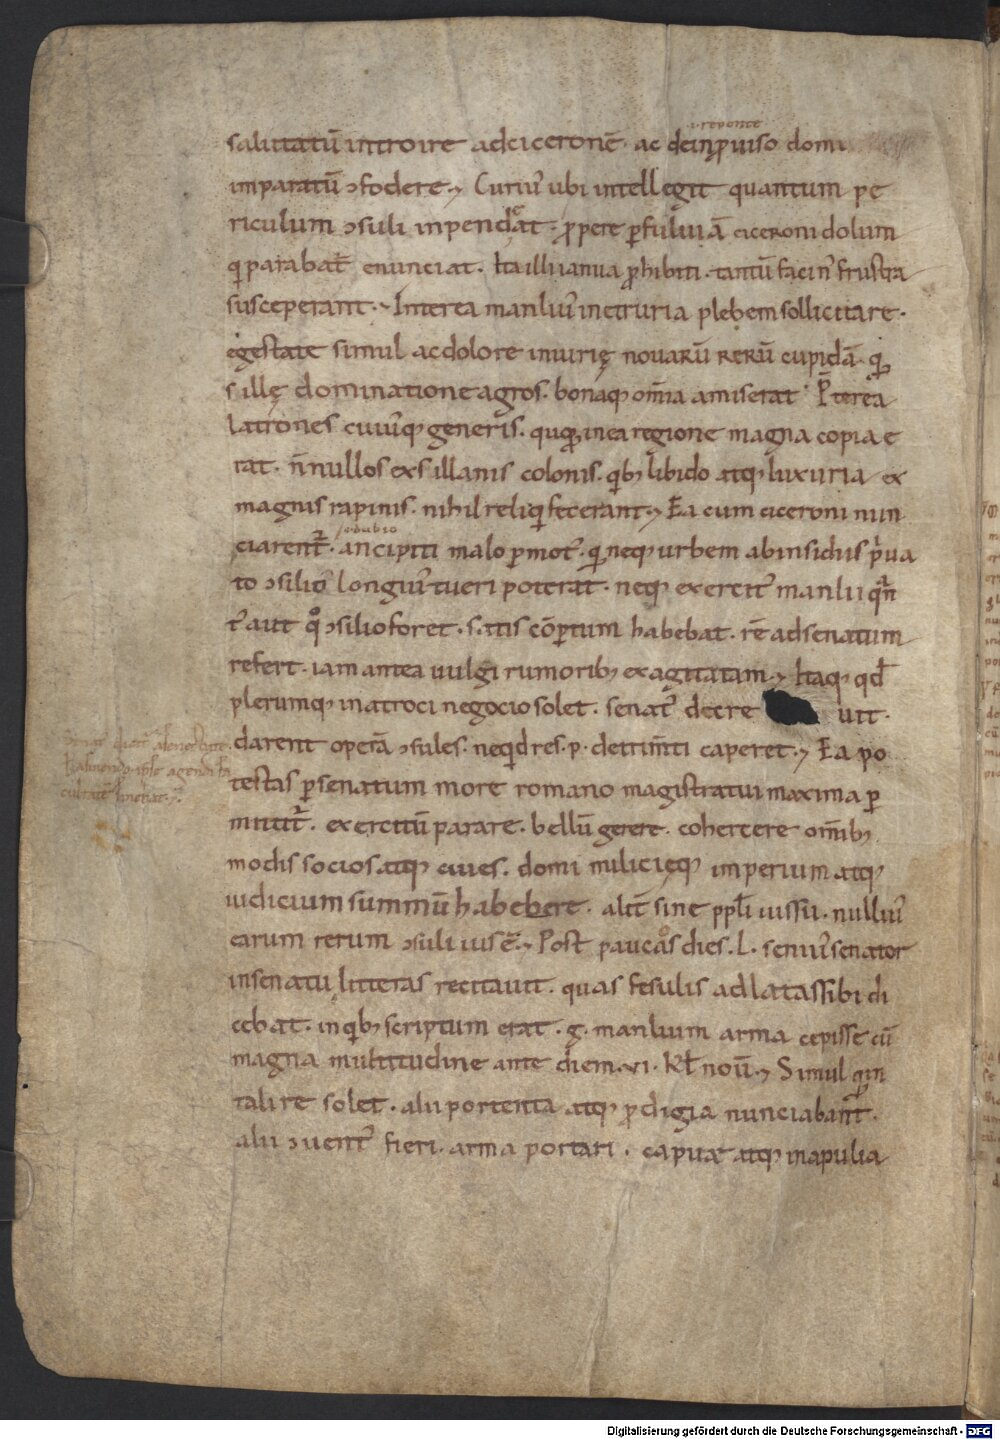 i. repente
salutatū introire adciceronē. ac deinp̱uiso domi
imparatū ɔfodere. Curiuˀ ubi intellegit quantum pe
riculum ɔsuli inpendat. p̱pere p̱fuluiā ciceroni dolum
qͥ parabatᷣ enunciat. Ita illi ianua p̱hibiti. tantū facinˀ frustra
susceperant. Interea manliuˀ inetruria plebem sollicitare.
egestate simul acdolore iniurię nouarū rerū cupidā. qᷓ
sillę dominatione agros. bonaqꝫ om̄ia amiserat. P̄terea
latrones cuiuˀqꝫ generis. quoꝝ inea regione magna copia e
rat. ñnullos exsillanis colonis. qͥbꝫ libido atqꝫ luxuria ex
magnis rapinis. nihil reliqͥ fecerant. Ea cum ciceroni nun
i. dubio
ciarentᷣ. ancipiti malo p̱motˀ. qᷓ neqꝫ urbem abinsidiis pͥua
to ɔsilio longiuˀ tueri poterat. neqꝫ exercitˀ manlii qᷓn
tˀ aut qͦ ɔsilio foret. satis cōp̱tum habebat. rē adsenatum
refert. iam antea uulgi rumoribꝫ exagitatam. Itaqꝫ qd̄
plerumqꝫ inatroci negocio solet. senatˀ decre uit.
darent operā ɔsules. neqͥd res.p. detrim̄ti caperet. Ea po
testas p̱senatum more romano magistratui maxima p̱
mittitᷣ. exercitū parare. bellū gerere. cohercere om̄ibꝫ
modis socios. atqꝫ ciues. domi militięqꝫ imperium atqꝫ
iudicium summū habebere. alit̄ sine pp̄li iussu. nulliuˀ
earum rerum ɔsuli ius ē. Post paucos dies. L. seniuˀ senator
insenatu litteras recitauit. quas fesulis adlatas sibi di
cebat. inqͥbꝫ scriptum erat. g. manlium arma cepisse cū
magna multitudine ante diem. vi. kl̄ nou̅. Simul qᷓ in
tali re solet. alii portenta atqꝫ p̱digia nunciabant.
alii ɔuentˀ fieri. arma portari. capuae atqꝫ inapulia
Digitalisierung gefördert durch die Deutsche Forschungsgemeinschaft - DFG